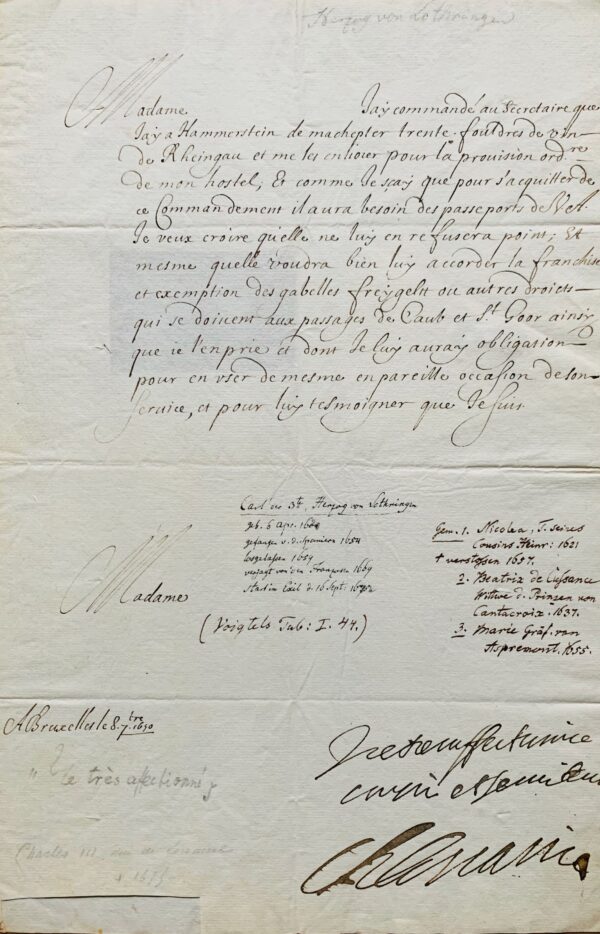 Herzog von Lothringen
Madame
Jay commandé au Secretaire que
Jay a Hammerstein de m'achepter trente foudres de vin
de Rheingau et me les enuoier pour la prouision ord.re
de mon hostel, Et comme Je sçay que pour s'acquitter de
ce Commandement il aura besoin des passeports de V.A.
Je veux croire qu'elle ne luy en refusera point; Et
mesme quelle voudra bien luy accorder la franchise
et exemption des gabelles freygelt ou autres droicts
qui se doiuent aux passages de Caub et S.t Goor ainsy
que ie l'en prie et dont Je luy auray obligation
pour en vser de mesme en pareille occasion de son
seruice, et pour luy tesmoigner que Je suis
Carl der 3te, Herzog von Lothringen
geb. 5 Apr.
gefangen v. d. Spaniern 1654
losgelassen 1659
verjagt von den Franzosen 1669
Starb im Exil d. 18 Sept.
Madame
(Voigtels Tab: I. 44.)
Gem. 1. Nicolea, T. seines
Cousins Heinr: 1621
† verstossen 1657.
2. Beatrix de Cusance
Wittwe d. Prinzen von
Cantacroix. 1637.
3. Marie Gräf. von
Aspremont. 1655.
A Bruxelles le 8. 7.bre 1650
Vre tres affectionne
cousin et seruiteur
Ch Lorraine
" le très afectionné
Charles III, duc de Lorraine